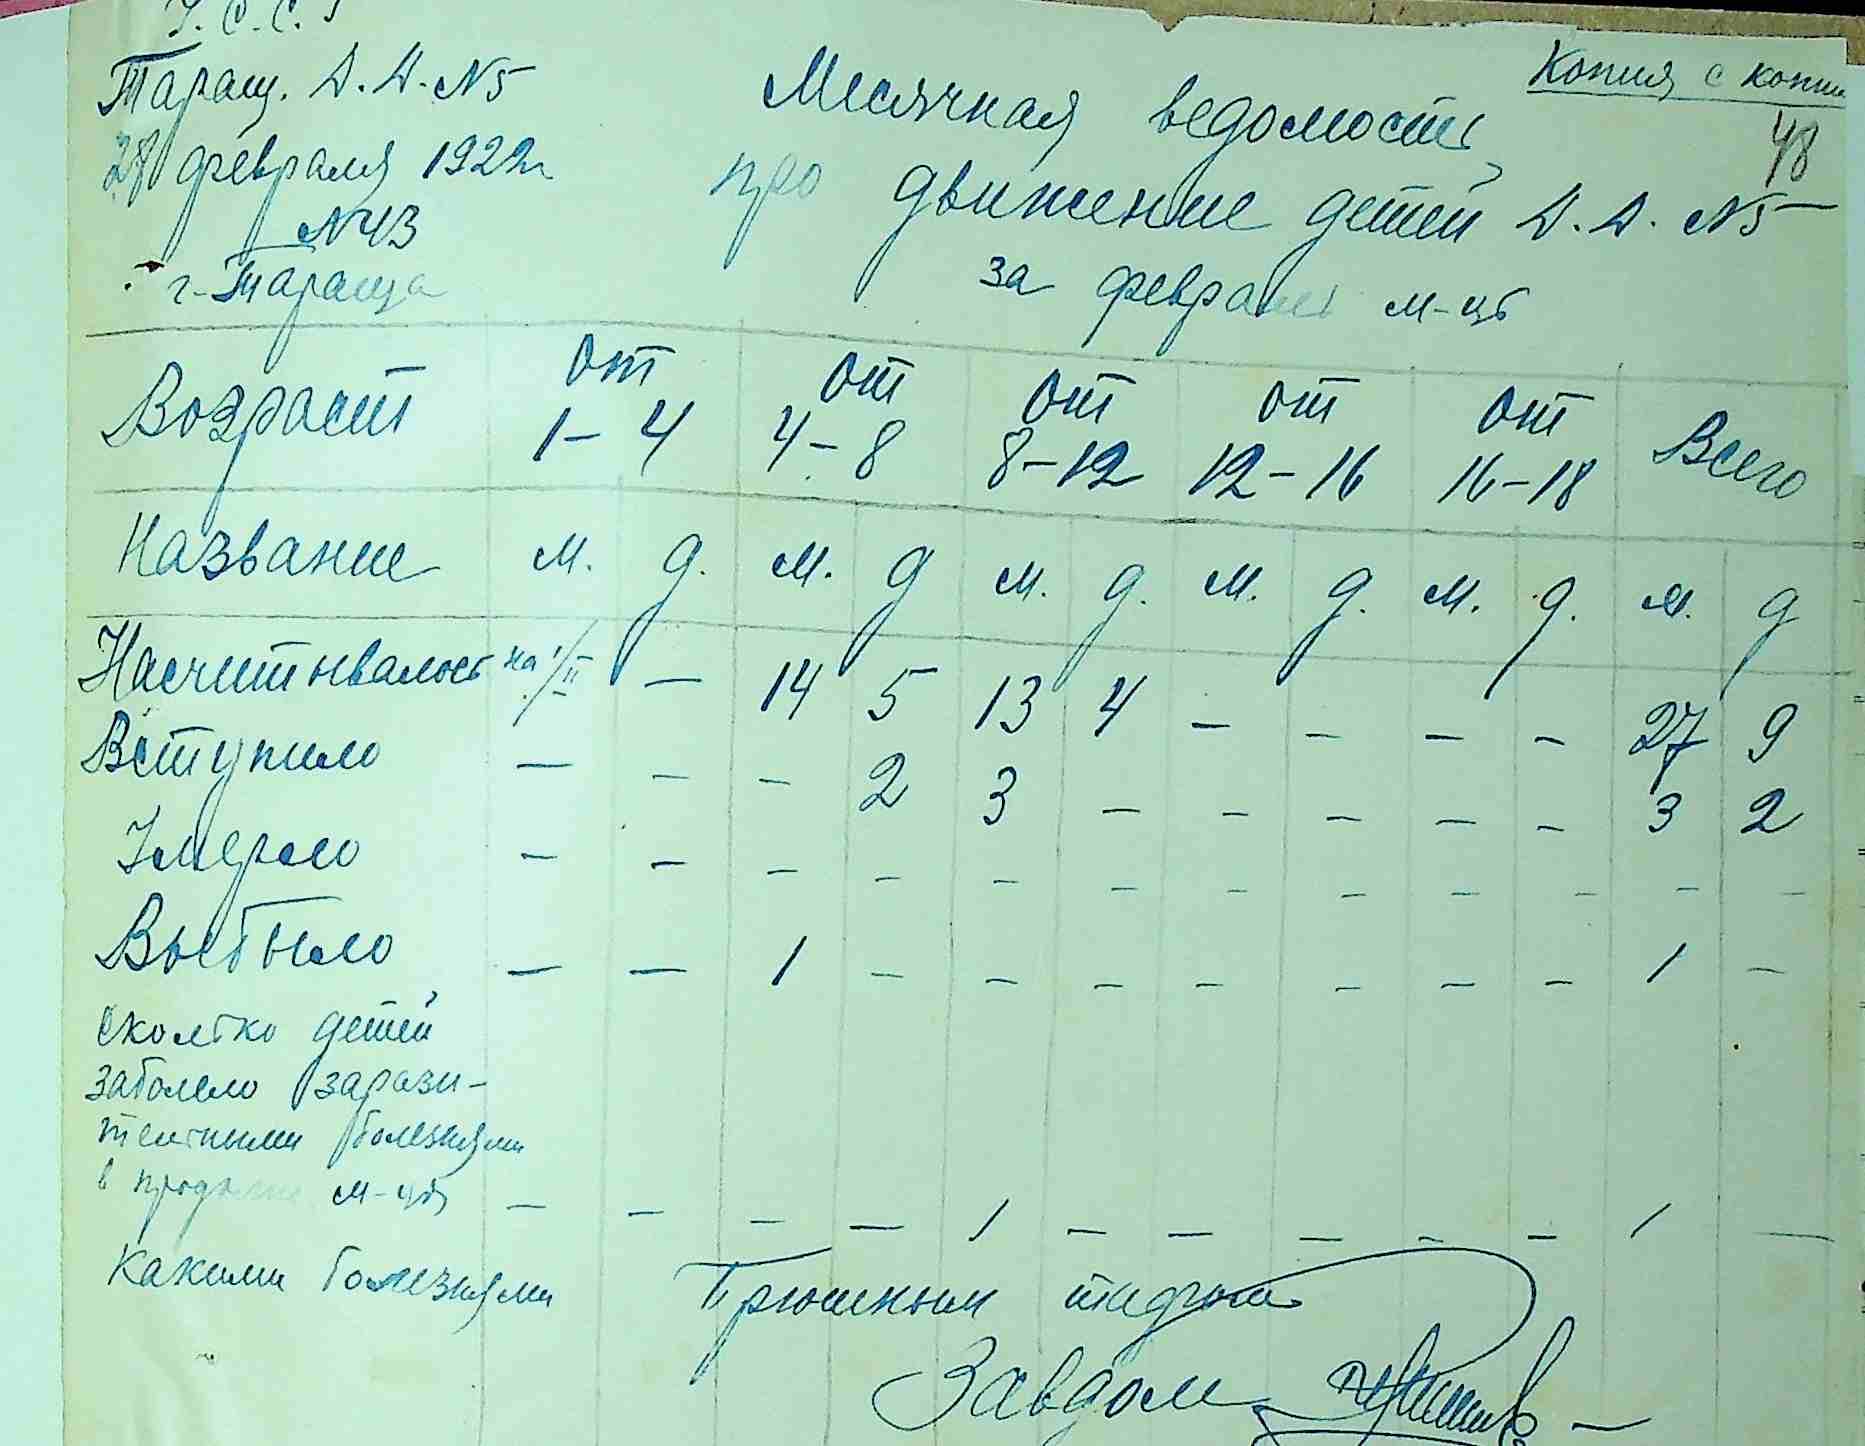 У. С. С. Р
Таращ. Д. Д. №5
28 февраля 1922 г
№43
г. Тараща
Копия с копии
48
Месячная ведомость
про движение детей Д. Д. №5
за февраль м-ць
Возраст от 1-4 от 4-8 от 8-12 от 12-16 от 16-18 Всего
Название м. д. м. д м. д. м. д. м. д. м. д
Насчитывалось на 1/II — 14 5 13 4 — — — — 27 9
Вступило — — — 2 3 — — — — — 3 2
Умерло — — — — — — — — — — — —
Выбыло — — 1 — — — — — — — 1 —
Сколько детей
заболело зарази-
тельными болезнями
в продолже м-ца — — — — 1 — — — — — 1 —
Какими болезнями Брюшным тифом
Завдом